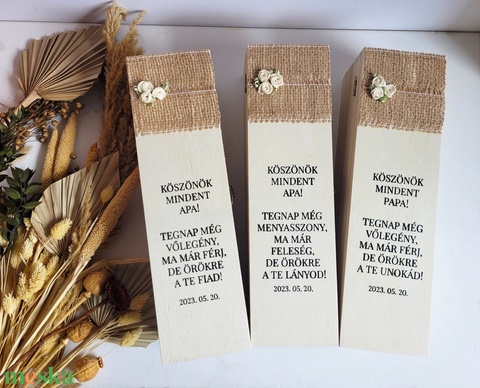 KÖSZÖNÖK
MINDENT
APA!
TEGNAP MÉG
VŐLEGÉNY,
MA MÁR FÉRJ,
DE ÖRÖKRE
A TE FIAD!
2023. 05. 20.
KÖSZÖNÖK
MINDENT
APA!
TEGNAP MÉG
MENYASSZONY,
MA MÁR
FELESÉG,
DE ÖRÖKRE
A TE LÁNYOD!
2023. 05. 20.
KÖSZÖNÖK
MINDENT
PAPA!
TEGNAP MÉG
VŐLEGÉNY,
MA MÁR FÉRJ,
DE ÖRÖKRE
A TE UNOKÁD!
2023. 05. 20.
meska